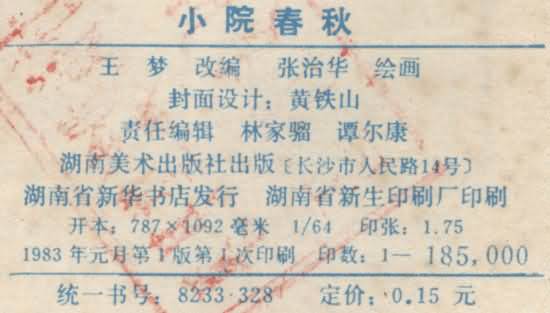 小院春秋
王梦 改编 张治华 绘画
封面设计：黄铁山
责任编辑 林家骝 谭尔康
湖南美术出版社出版〔长沙市人民路14号〕
湖南省新华书店发行 湖南省新生印刷厂印刷
开本：787×1092毫米 1/64 印张：1.75
1983年元月第1版第1次印刷 印数：1—185,000
统一书号：8233·328 定价：0.15元